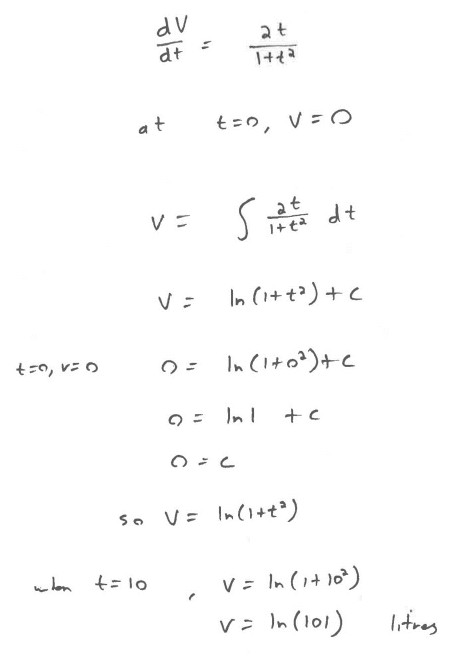 dV/dt = 2t/(1+t²)
at t=0, V=0
V = ∫ 2t/(1+t²) dt
V = ln(1+t²)+c
t=0, v=0 0 = ln(1+0²)+c
0 = ln1 + c
0 = c
so V = ln(1+t²)
when t=10 , V = ln(1+10²)
V = ln(101) litres